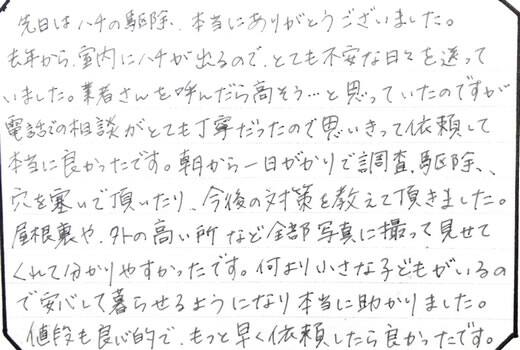 先日はハチの駆除、本当にありがとうございました。
去年から、室内にハチが出るので、とても不安な日々を送って
いました。業者さんを呼んだら高そう…と思っていたのですが
電話での相談がとても丁寧だったので思いきって依頼して
本当に良かったです。朝から一日がかりで調査、駆除、、
穴を塞いで頂いたり、今後の対策を教えて頂きました。
屋根裏や、外の高い所など全部写真に撮って見せて
くれて分かりやすかったです。何より小さな子どもがいるの
で安心して暮らせるようになり本当に助かりました。
値段も良心的で、もっと早く依頼したら良かったです。